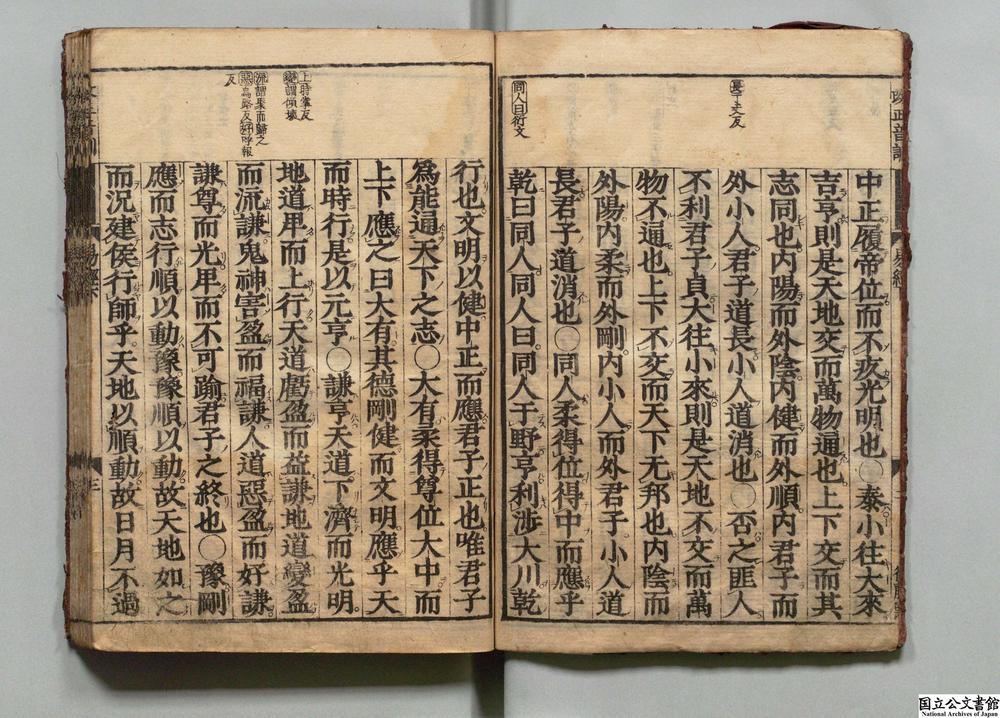 長 丈反
同人曰衍文
中正履帝位而不疚光明也○泰小往大來
吉亨則是天地交而萬物通也上下交而其
志同也内陽而外陰内健而外順内君子而
外小人君子道長小人道消也○否之匪人
不利君子貞大往小來則是天地不交而萬
物不通也上下不交而天下无邦也内陰而
外陽内柔而外剛内小人而外君子小人道
長君子道消也○同人柔得位得中而應乎
乾曰同人同人曰同人于野亨利渉大川乾
上時掌反
變謂傾壞
流謂聚而歸之
惡烏路反好呼報
反
行也文明以健中正而應君子正也唯君子
爲能通天下之志○大有柔得尊位大中而
上下應之曰大有其德剛健而文明應乎天
而時行是以元亨○謙亨天道下濟而光明
地道卑而上行天道虧盈而益謙地道變盈
而流謙鬼神害盈而福謙人道惡盈而好謙
謙尊而光卑而不可踰君子之終也○豫剛
應而志行順以動豫豫順以動故天地如之
而況建侯行師乎天地以順動故日月不過
易經
国立公文書館
National Archives of Japan